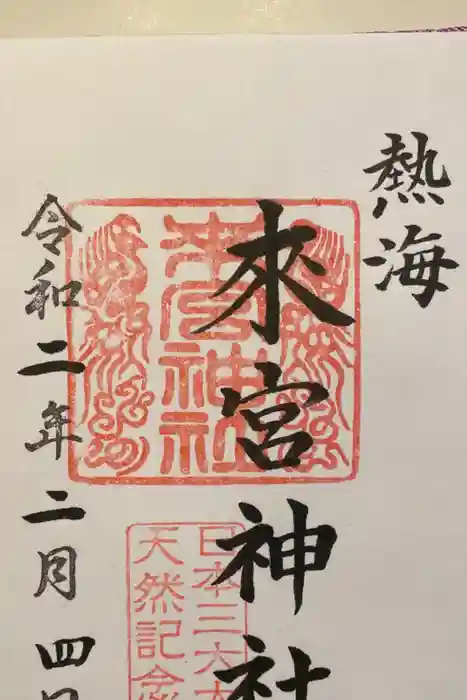 熱海
來宮神社
令和二年二月四日
來宮神社
日本三大
天然記念